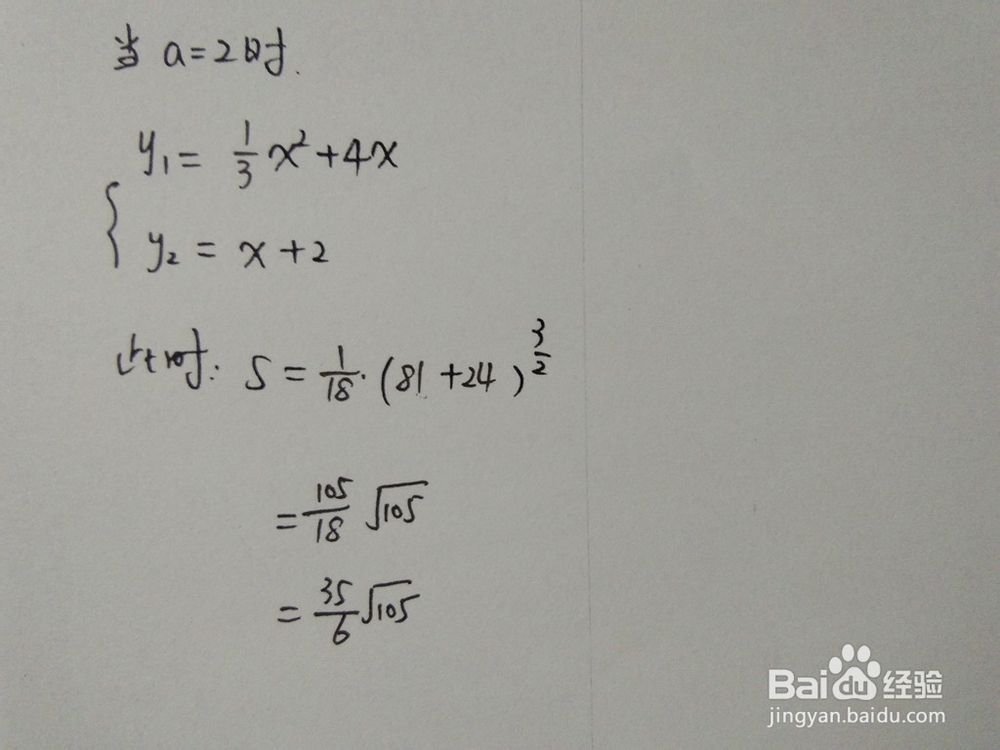 当 a=2时.
y₁ = 1/3 x² + 4x
y₂ = x + 2
此时: S = 1/18 · (81 + 24)^(3/2)
= 105/18 √105
= 35/6 √105
Baidu 经验
jingyan.baidu.com